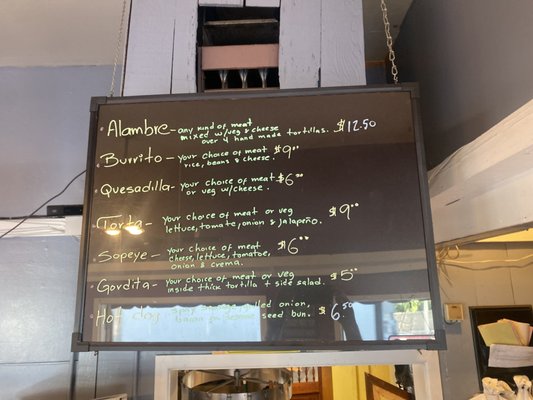 Alambre - any kind of meat
mixed w/veg & cheese
over 4 hand made tortillas. $12.50
Burrito - your choice of meat $9.00
rice, beans & cheese.
Quesadilla - your choice of meat $6.00
or veg w/cheese.
Torta - your choice of meat or veg $9.00
lettuce, tomato, onion & jalapeño.
Sopeye - your choice of meat $6.00
cheese, lettuce, tomatoe,
onion & crema.
Gordita - your choice of meat or veg $5.00
inside thick tortilla + side salad.
Hot dog grilled onion, $6.50
bacon on sesame seed bun.